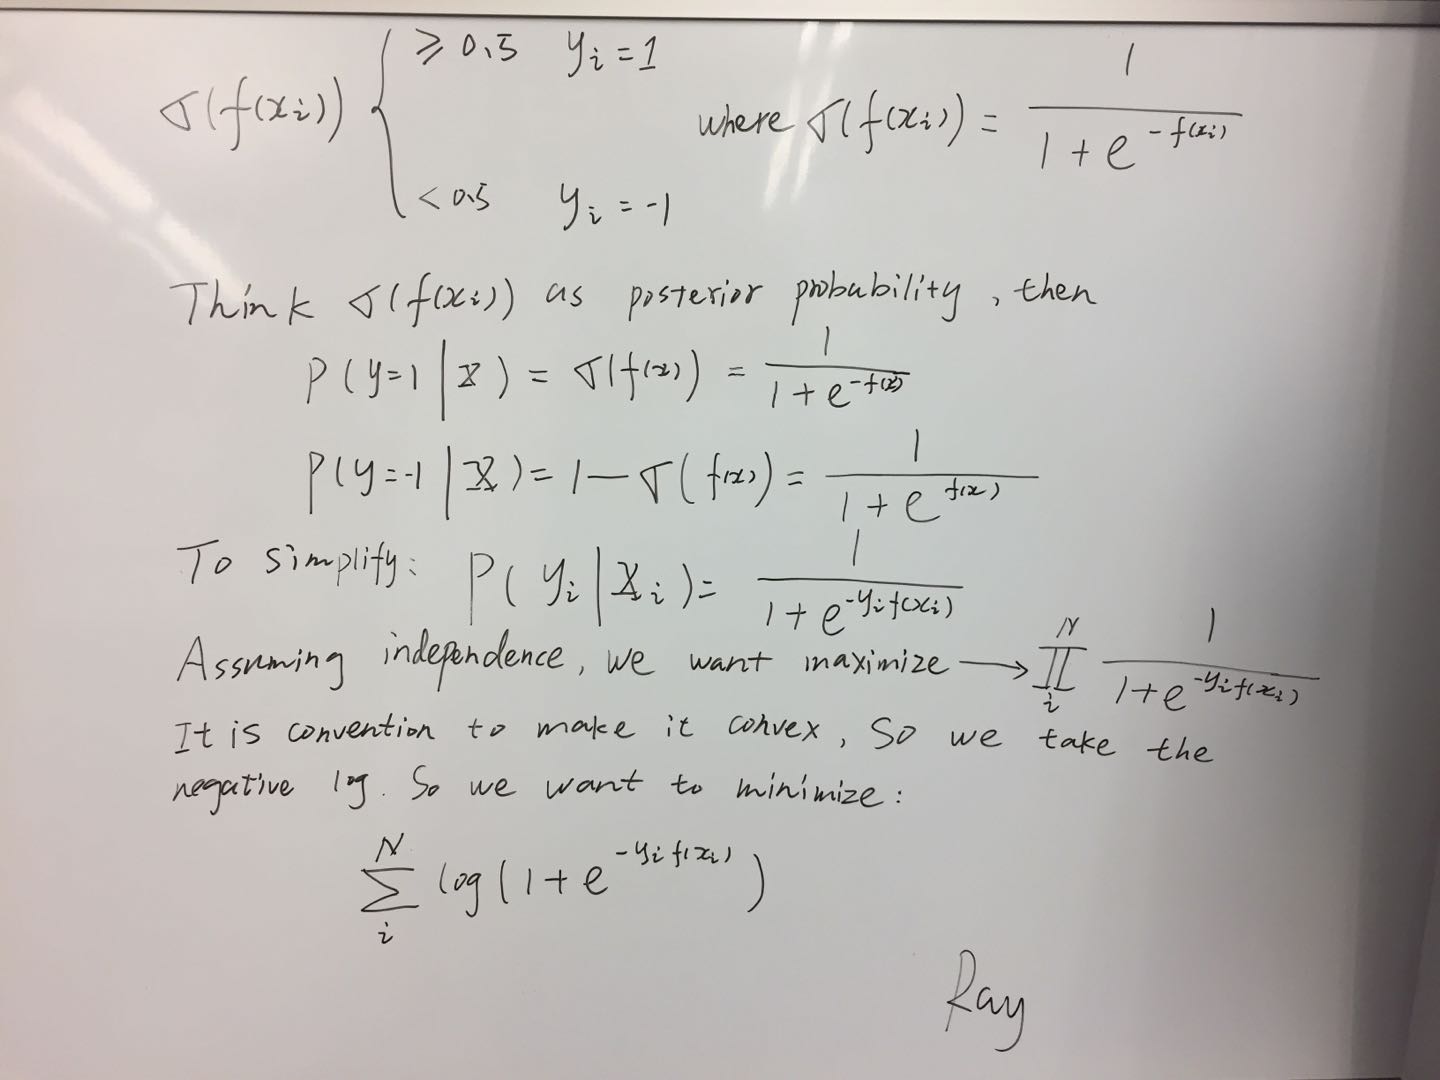 σ(f(xi)) { ≥ 0.5 yi = 1
< 0.5 yi = -1
where σ(f(xi)) = 1 / (1 + e^(-f(xi)))
Think σ(f(xi)) as posterior probability, then
P(y=1 | X) = σ(f(x)) = 1 / (1 + e^(-f(x)))
P(y=-1 | X) = 1 - σ(f(x)) = 1 / (1 + e^(f(x)))
To simplify: P(yi | Xi) = 1 / (1 + e^(-yi f(xi)))
Assuming independence, we want maximize → ∏_i^N 1 / (1 + e^(-yi f(xi)))
It is convention to make it convex, So we take the
negative log. So we want to minimize:
∑_i^N log(1 + e^(-yi f(xi)))
Ray